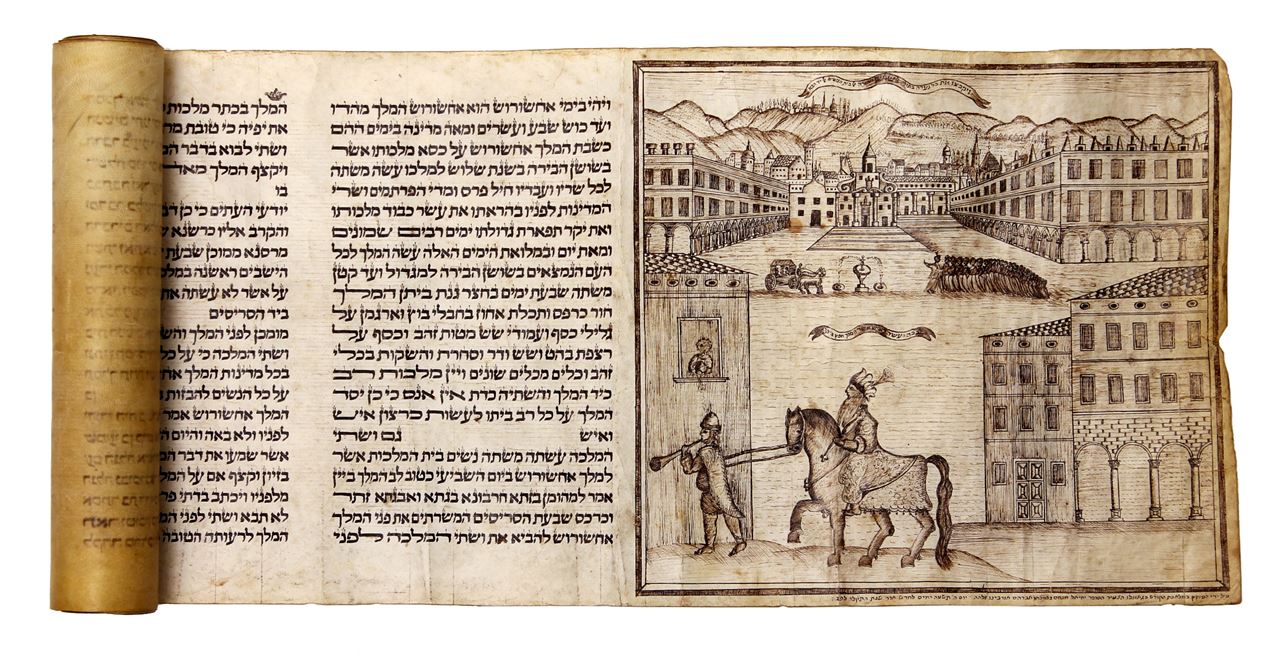 ויהי בימי אחשורוש הוא אחשורוש המלך מהדו
ועד כוש שבע ועשרים ומאה מדינה בימים ההם
כשבת המלך אחשורוש על כסא מלכותו אשר
בשושן הבירה בשנת שלוש למלכו עשה משתה
לכל שריו ועבדיו חיל פרס ומדי הפרתמים ושרי
המדינות לפניו בהראתו את עשר כבוד מלכותו
ואת יקר תפארת גדולתו ימים רבים שמונים
ומאת יום ובמלואת הימים האלה עשה המלך לכל
העם הנמצאים בשושן הבירה למגדול ועד קטן
משתה שבעת ימים בחצר גנת ביתן המלך
חור כרפס ותכלת אחוז בחבלי בוץ וארגמן על
גלילי כסף ועמודי שש מטות זהב וכסף על
רצפת בהט ושש ודר וסחרת והשקות בכלי
זהב וכלים מכלים שונים ויין מלכות רב
כיד המלך והשתיה כדת אין אנס כי כן יסד
המלך על כל רב ביתו לעשות כרצון איש
ואיש גם ושתי
המלכה עשתה משתה נשים בית המלכות אשר
למלך אחשורוש ביום השביעי כטוב לב המלך ביין
אמר למהומן בזתא חרבונא בגתא ואבגתא זתר
וכרכס שבעת הסריסים המשרתים את פני המלך
אחשורוש להביא את ושתי המלכה לפני
המלך בכתר מלכות
את יפיה כי טובת
ושתי לבוא בדבר
ויקצף המלך מאד
בו
יודעי העתים כי כן
והקרב אליו כרשנא
מרסנא ממוכן שבעת
הישבים ראשנה
על אשר לא עשתה
ביד הסריסים
מומכן לפני המלך
ושתי המלכה כי על
בכל מדינות המלך
על כל הנשים להבזות
המלך אחשורוש אמר
לפניו ולא באה והיום
אשר שמעו את דבר
בזיון וקצף אם על
מלפניו ויכתב בדתי
לא תבא ושתי לפני
המלך לרעותה הטובה